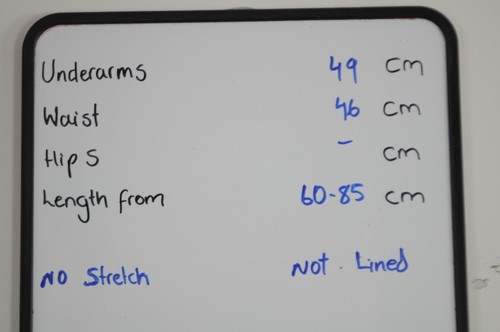 Underarms 49 cm
Waist 46 cm
Hips - cm
Length from 60-85 cm
NO Stretch Not. Lined